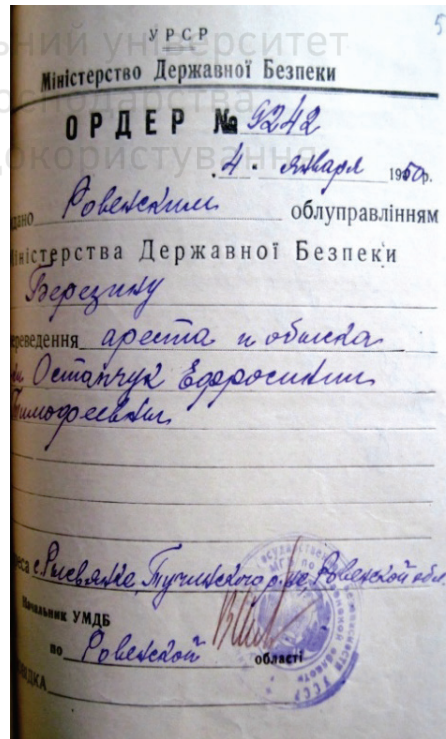 5
УРСР
Міністерство Державної Безпеки
ОРДЕР № 9242
"4" января 1950р.
дано Ровенским облуправлінням
Міністерства Державної Безпеки
Березину
реведення ареста и обыска
Останчук Ефросинии
Тимофеевны
реса с. Рысвянка, Тучинского р-на, Ровенской обл.
Начальник УМДБ
по Ровенской області
ВІДКА